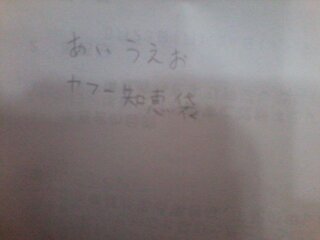 あいうえお
ヤフー知恵袋